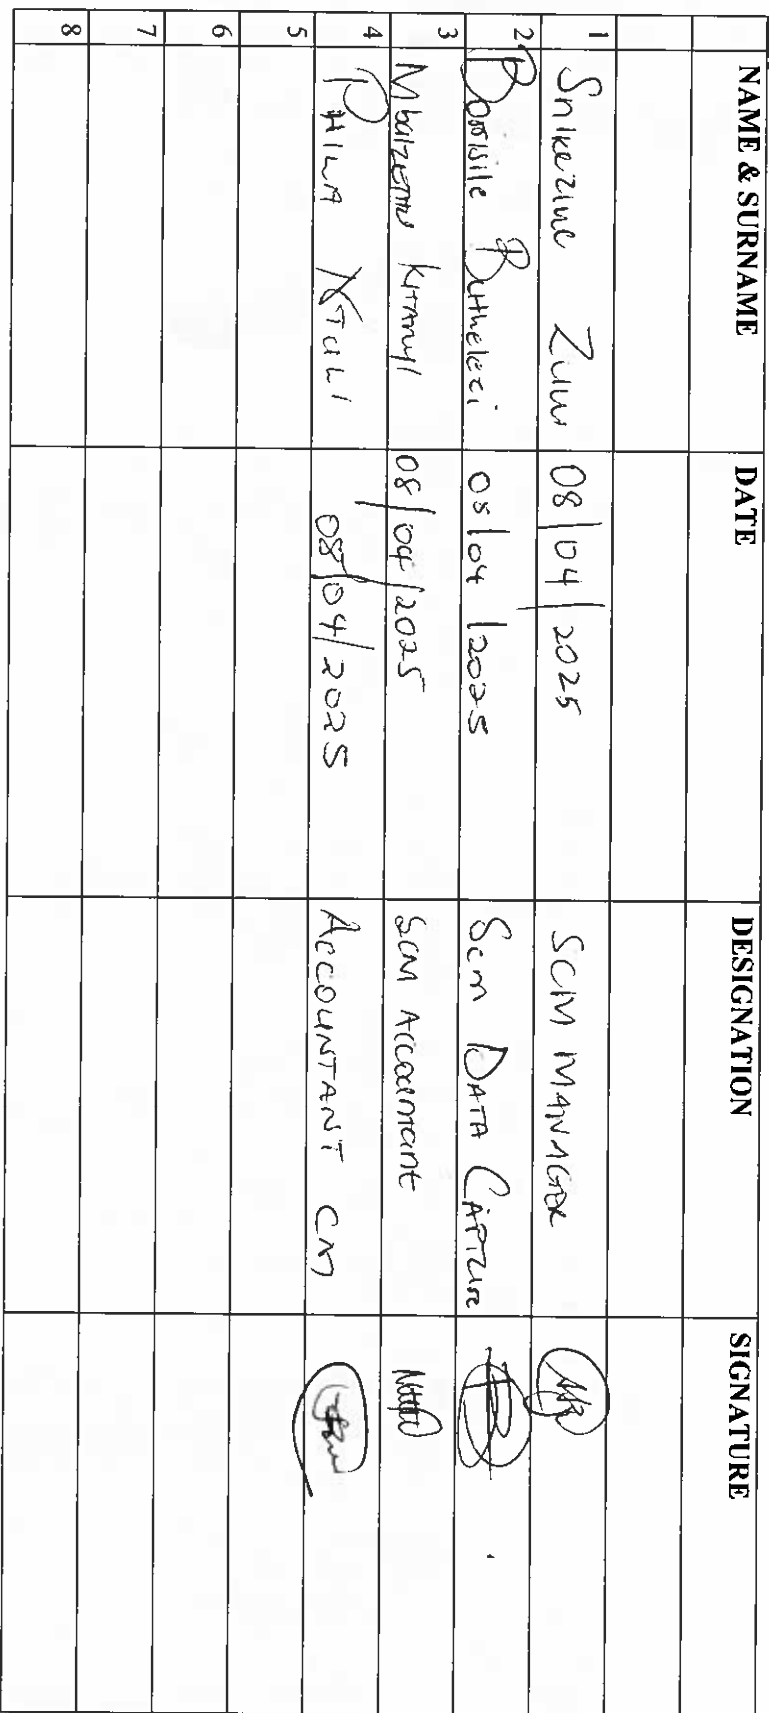 NAME & SURNAME DATE DESIGNATION SIGNATURE
1 Snikezine Zuw 08/04/2025 SCM MANAGER
2 Bonisile Buthelezi 08/04/2025 Scm DATA CAPTURE
3 08/04/2025 SCM Accountant
4 PHILA NTULI 08/04/2025 ACCOUNTANT CM
5
6
7
8